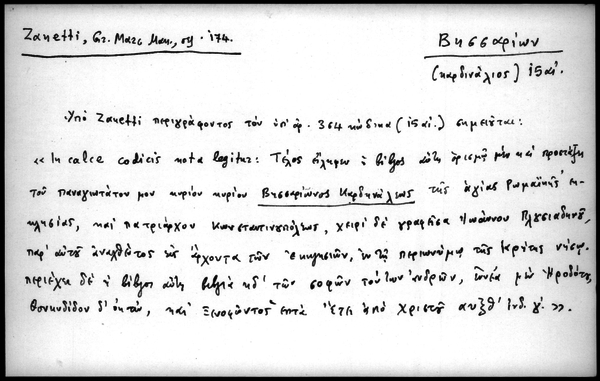 Zanetti, Gr. Marc Man., σῃ. 174.
Βησσαρίων
(καρδινάλιος) 15 αἰ.
Ὑπὸ Zanetti περιγράφοντος τὸν ὑπ' ἀρ. 364 κώδικα (15 αἰ.) σημειοῦται:
« In calce codicis nota legitur: Τέλος εἴληφεν ἡ βίβλος αὕτη ὁρισμῷ μὲν καὶ προστάξει
τοῦ παναγιωτάτου μου κυρίου κυρίου Βησσαρίωνος Καρδηνάλεως τῆς ἁγίας Ρωμαϊκῆς Ἐκ-
κλησίας, καὶ πατριάρχου Κωνσταντινουπόλεως, χειρὶ δὲ γραφεῖσα Ἰωάννου Πλυσιαδηνοῦ,
παρ' αὐτοῦ εἰς ἄρχοντα τῶν ἐκκλησιῶν, ἐν τῇ περιωνύμῳ τῆς Κρήτης νήσῳ.
περιέχει δὲ ἡ βίβλος αὕτη βιβλία κδ' τῶν σοφῶν τούτων ἀνδρῶν, ἐννέα μὲν Ἡροδότου,
Θουκυδίδου δ' ὀκτὼ, καὶ Ξενοφῶντος ἑπτά Ἔτει ἀπὸ Χριστοῦ αυξθ' ἰνδ. γ'. ».